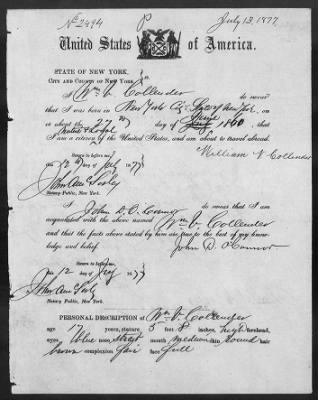 No 2494 P July 13, 1877
United States of America.
STATE OF NEW YORK,
CITY AND COUNTY OF NEW YORK
I Wm V. Collender do swear
that I was born in New York City, New York, on
or about the 27th day of June 1860, that
I am a native & loyal citizen of the United States, and am about to travel abroad.
William V Collender
Sworn to before me
this 12th day of July 1877
Notary Public, New York.
I John D. O'Connor do swear that I am
acquainted with the above named Wm V. Collender
and that the facts above stated by him are true to the best of my knowledge and belief.
John D. O'Connor
Sworn to before me
this 12 day of July 1877
Notary Public, New York.
PERSONAL DESCRIPTION OF Wm V. Collender
age 17 years, stature 5 feet 8 inches, high forehead,
eyes blue nose straight mouth medium chin round hair
brown complexion fair face full